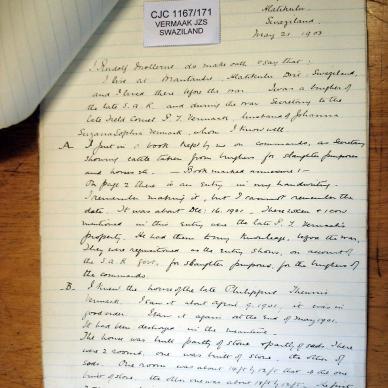 CJC 1167/171
VERMAAK JZS
SWAZILAND
Hlatikulu
Swaziland.
May 21 1903
I Rudolf do make oath & say that:
I live at Hlatikulu Dist. Swaziland,
and I lived there before the war. I was a burgher of
the late S.A.R. and during the war Secretary to the
late Field Cornet P. J. Vermaak, husband of Johanna
Susanna Sophia Vermaak, whom I know well
A. I put in a book kept by me on commando, as Secretary
showing cattle taken from burghers for slaughter purposes
and horses etc. — Book marked annexure 1 —
On page 2 there is an entry in my handwriting.
I remember making it, but I cannot remember the
date. It was about Dec: 16. 1901. The oxen & 1 cow
mentioned in this entry were the late P. J. Vermaak's
property. He had them to my knowledge, before the war.
They were requisitioned as the entry shows, on account of
the S.A.R. Govt. for slaughter purposes, for the burghers of
the commando.
B. I knew the house of the late Philippus Theunis
Vermaak. I saw it about April 9. 1901, it was in
good order. I saw it again at the end of May 1901.
It had been destroyed in the meantime.
The house was built partly of stone & partly of sods. There
were 2 rooms, one was built of stone, the other of
sods. One room was about that is the one
built of stone, the other one was about